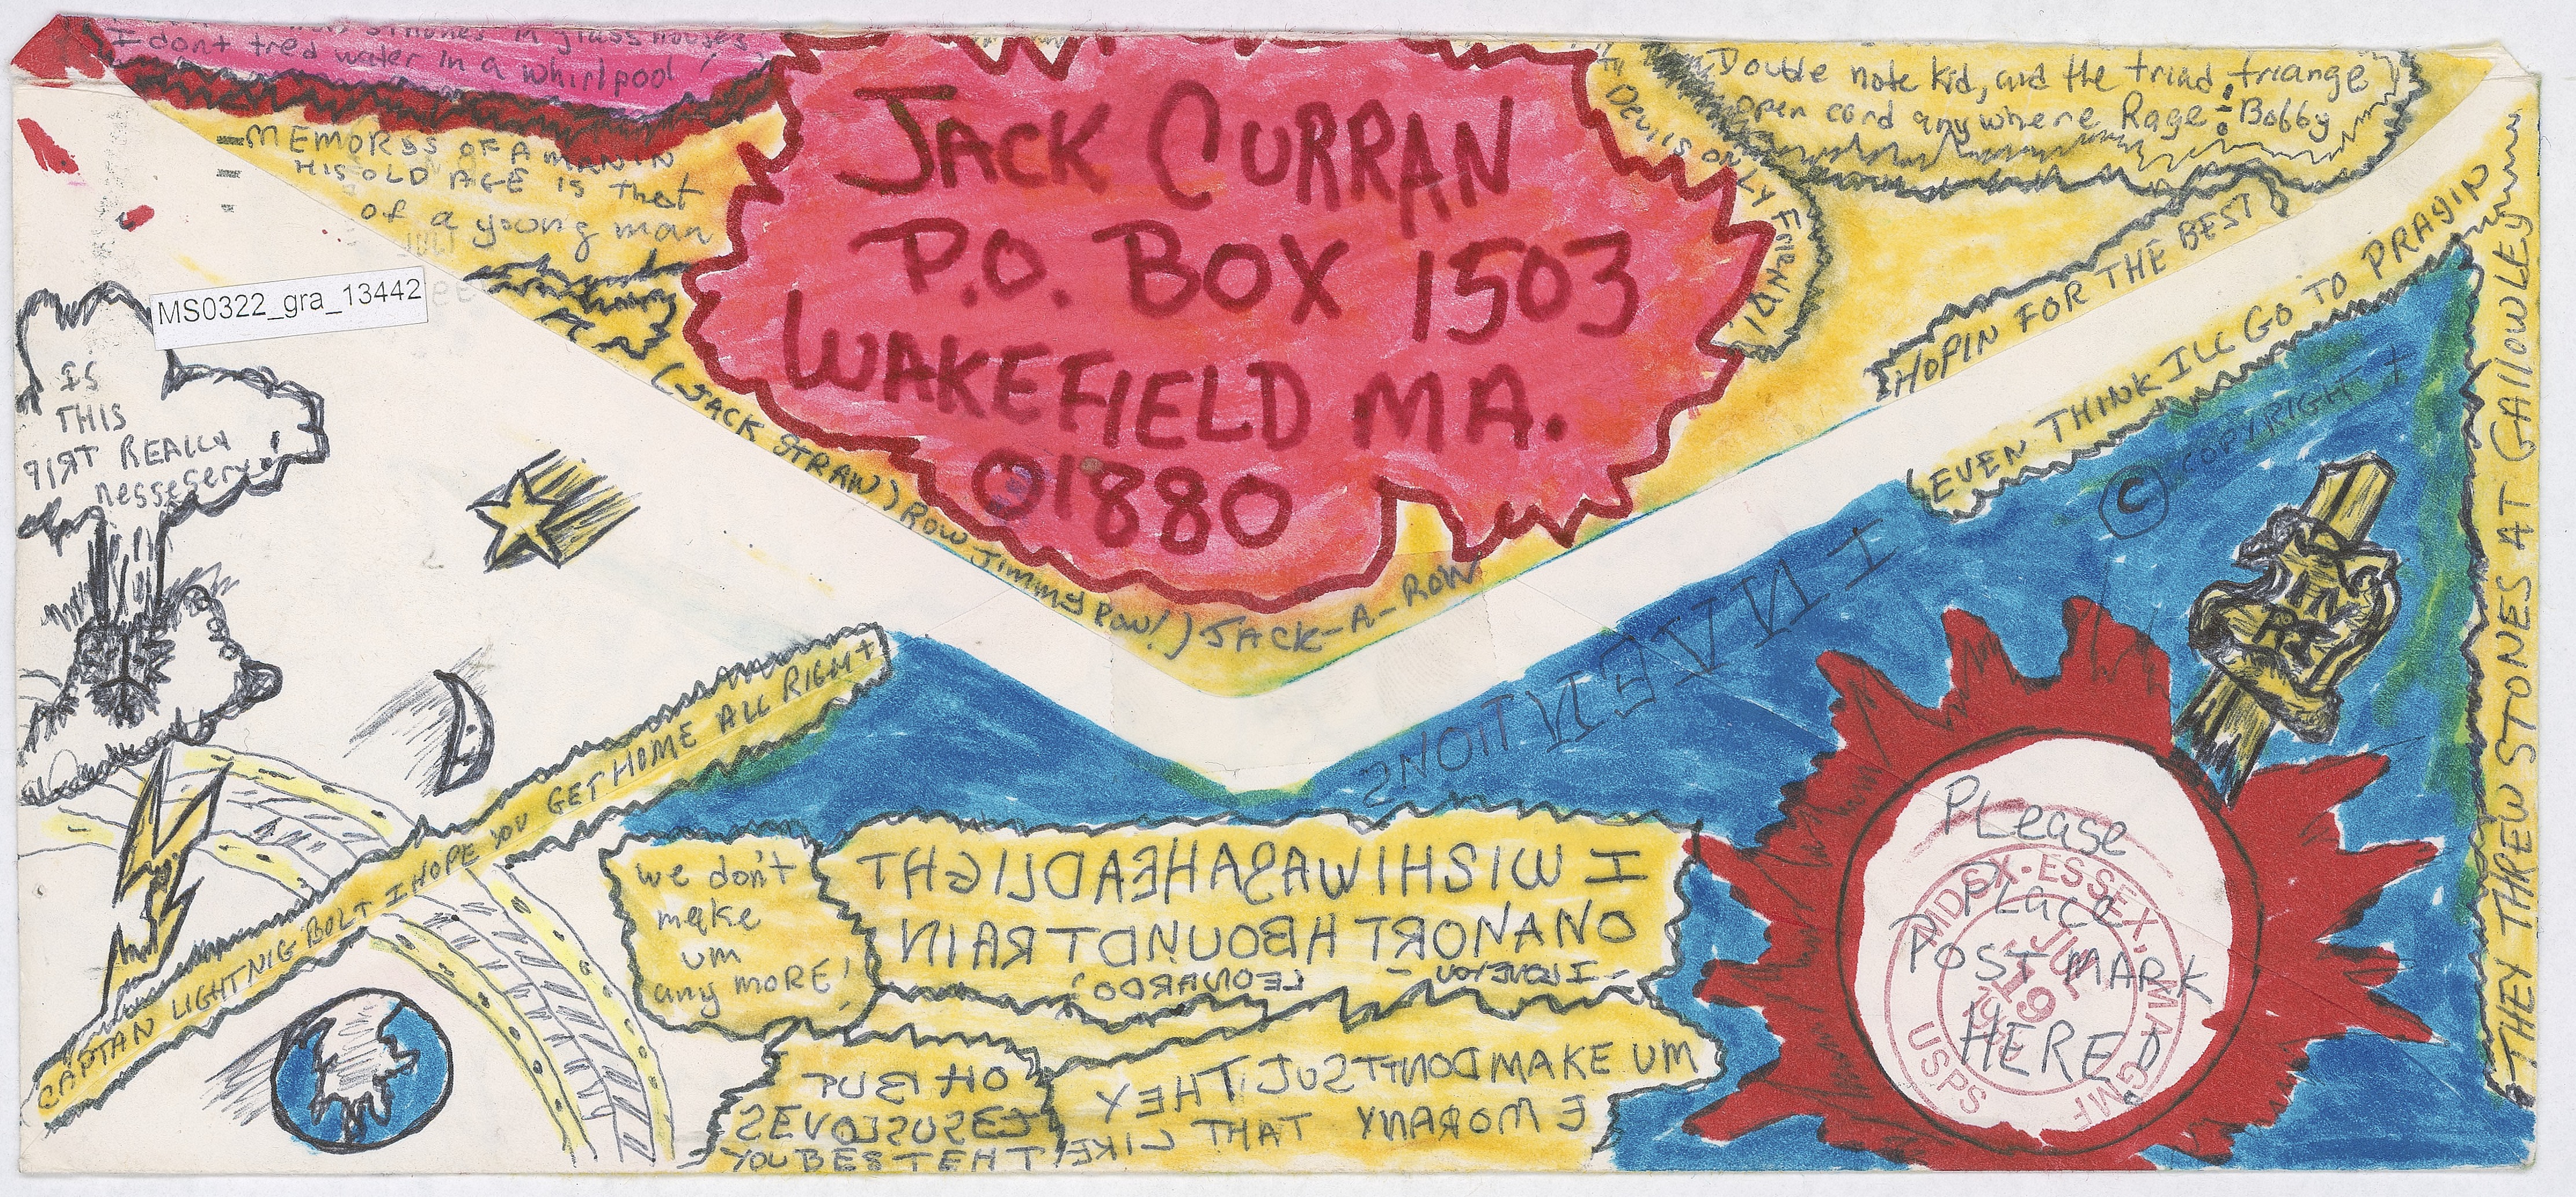 I dont tred water in a whirlpool!
-MEMORYS OF A MAN IN
HIS OLD AGE IS that
of a young man
MS0322_gra_13442
JACK CURRAN
P.O. BOX 1503
WAKEFIELD MA.
01880
Double note kid, and the triad, triange
open cord anywhere Rage - Bobby
DEVILS ONLY FIREND!
HOPIN FOR THE BEST
EVEN THINK ILL GO TO PRAGIN
© COPYRIGHT
THEY THREW STONES AT GAllOWLEY
(JACK STRAW) ROW Jimmy Row!) JACK-A-ROW
IS
THIS
qIRT REALLY
nessesery
IN RT
INVENTIONS
CAPTAN LIGHTNIG BOLT I HOPE YOU GET HOME ALL RIGHT
we don't
make
um
any MORE!
I WISH I WAS A HEADLIGHT
ON A NORTH BOUND TRAIN
- I LOVE YOU - LEONARDO?
OH BUT
JESUS LOVES
YOU BESTEHT
THEY JUST DONT MAKE UM
LIKE THAT ANY MORE
PLease
PLACE
POST MARK
HERE
MIDSX-ESSEX, MA GMF
JUL
19
USPS